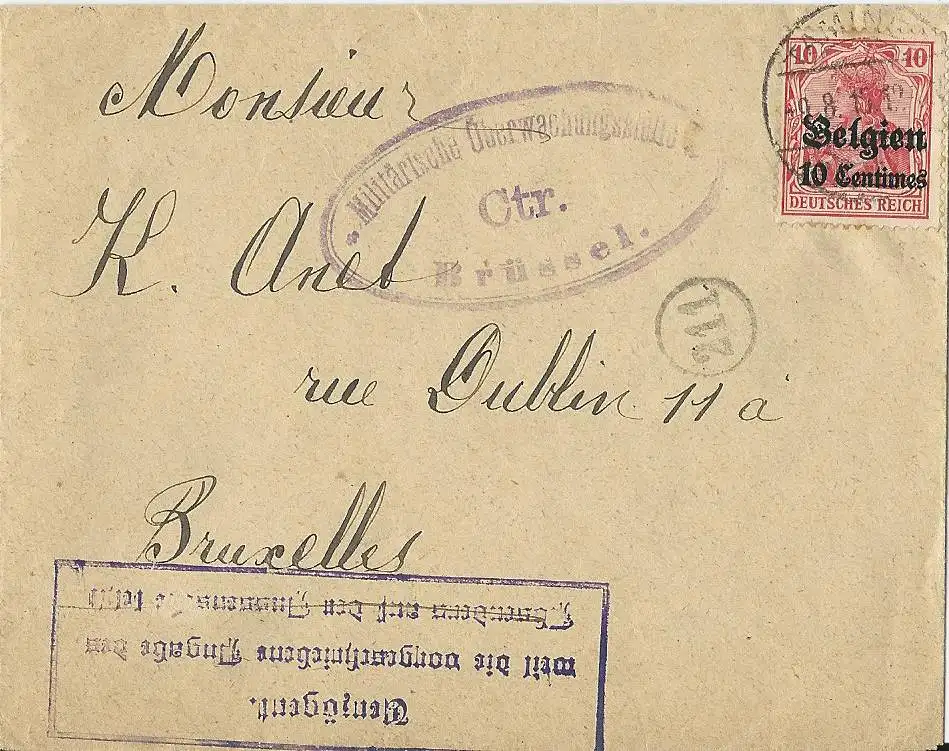 Monsieur
K. Anet
rue Dublin 11 à
Bruxelles
Militärische Überwachungsstelle
Ctr.
Brüssel.
8. 15.
10 10
Belgien
10 Centimes
DEUTSCHES REICH
117
Verzögert.
weil die vorgeschriebene Angabe des
Absenders auf der Aussenseite fehlt